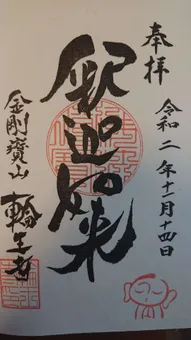 奉拝
令和二年十一月十四日
釈迦如来
金剛寶山
輪王寺